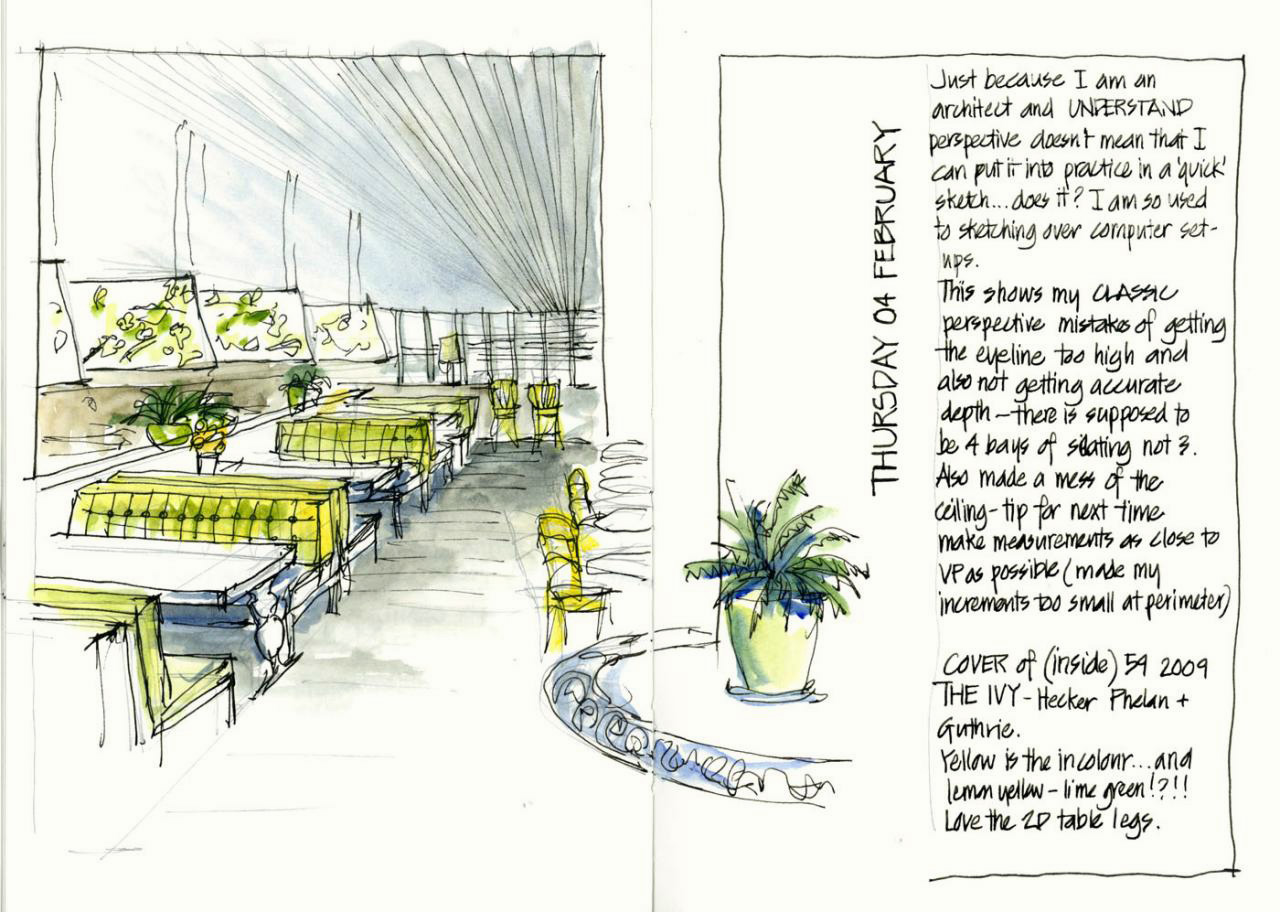 THURSDAY 04 FEBRUARY
Just because I am an
architect and UNDERSTAND
perspective doesn't mean that I
can put it into practice in a 'quick'
sketch...does it? I am so used
to sketching over computer set-
ups.
This shows my CLASSIC
perspective mistakes of getting
the eyeline too high and
also not getting accurate
depth - there is supposed to
be 4 bays of seating not 3.
Also made a mess of the
ceiling - tip for next time
make measurements as close to
VP as possible (made my
increments too small at perimeter)
COVER of (inside) 54 2009
THE IVY - Hecker Phelan +
Guthrie.
Yellow is the in colour...and
lemon yellow - lime green!?!!
Love the 2D table legs.